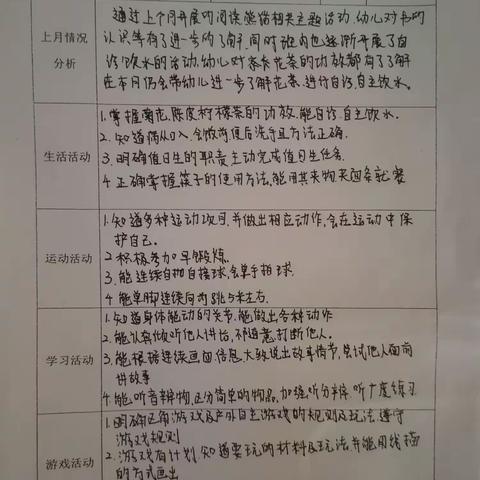 上月情况
分析
通过上个月开展的阅读熊猫相关主题活动,幼儿对书的
认识等有了进一步的了解,同时班内也逐渐开展了自
活饮水的活动,幼儿对家长花茶的功效都有了了解
在本月仍会带幼儿进一步了解花茶,进行自活自主饮水。
生活活动
1.掌握菊花、陈皮柠檬茶的功效,能自活自主饮水。
2.知道病从口入,会饭前便后洗手且方法正确。
3.明确值日生的职责主动完成值日生任务.
4.正确掌握筷子的使用方法,能用其夹物夹面条就餐
运动活动
1.知道多种运动项目,并做出相应动作,会在运动中保
护自己。
2.积极参加早锻炼。
3.能连续自抛自接球,会单手拍球.
4.能单脚连续向前跳5米左右.
学习活动
1.知道身体能动的关节,能做出各种动作
2.能认真倾听他人讲话,不随意打断他人。
3.能根据连续画面信息,大致说出故事情节,尝试他人面前
讲故事
4.能听音辨物,区分简单的物品,加强听分辨、听广度练习
游戏活动
1.明确区角游戏及户外自主游戏的规则及玩法遵守
游戏规则
2.游戏有计划,知道要玩的材料及玩法并能用线描
的方式画出